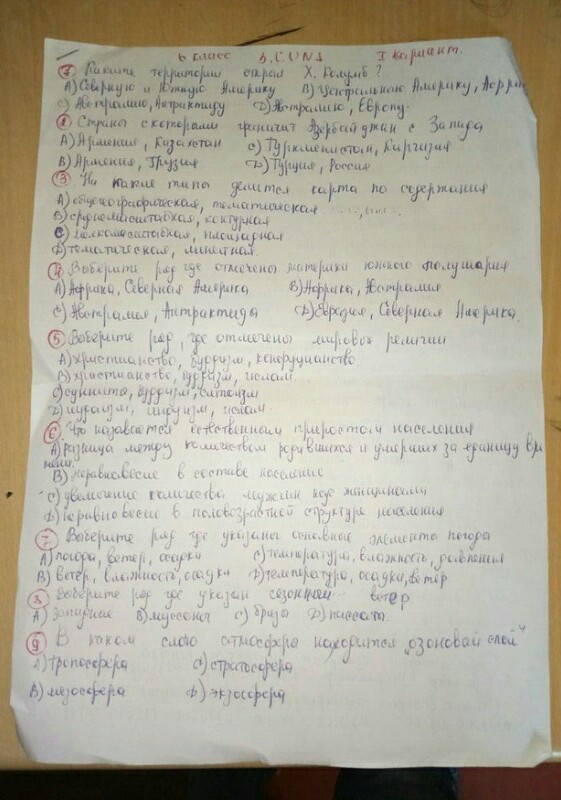 6 класс З.СИЛ1 I вариант.
1 Какие территории открыл Х. Колумб?
А) Северную и Южную Америку В) Центральную Америку, Африк
С) Австралию, Антрактиду D) Австралию, Европу.
2 Страны с которами граничит Азербайджан с Запада
А) Армения, Казахстан С) Туркменистан, Киргизия
В) Армения, Грузия D) Турция, Россия
3 На какие типы делится карта по содержания
А) общегеографическая, тематическая
В) среднемасштабная, контурная
С) мелкомасштабная, площадная
D) тематическая, линейная.
4 Выберите ряд где отмечены материки южного полушария
А) Африка, Северная Америка В) Африка, Австралия
С) Австралия, Антрактида D) Евразия, Северная Америка.
5 Выберите ряд, где отмечены мировые религии
А) христианство, буддизм, конфуцианство
В) христианство, буддизм, ислам.
С) сунниты, буддизм, синтоизм
D) иудаизм, индуизм, ислам.
6 Что называется естественным приростом населения
А) разница между количеством родившихся и умерших за единицу вре
мени.
В) неравновесие в составе население
С) увеличение количества мужчин над женщинами
D) неравновесие в половозрастной структуре населения
7 Выберите ряд где указаны основные элемента погода
А) погода, ветер, осадки С) температура, влажность, давления
В) ветер, влажность, осадки D) температура, осадки, ветер
8 Выберите ряд где указан сезонный ветер
А) Западные В) муссоны С) бризы D) пассаты.
9 В каком слою атмосфера находится „озоновый слой"
А) тропосфера С) стратосфера
В) мезосфера D) экзосфера